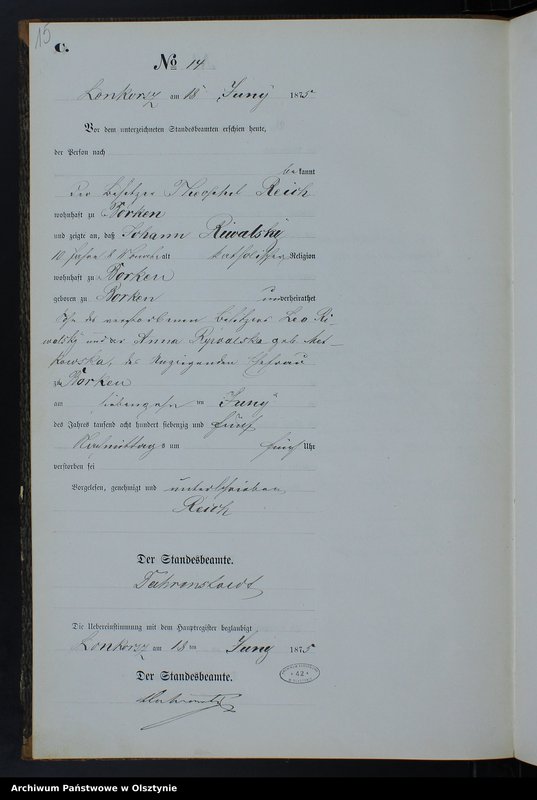 15
C.
No 14
Lonkorz am 18 Juny 1875
Vor dem unterzeichneten Standesbeamten erschien heute,
der Person nach
be kannt
der Besitzer Theophil Reich
wohnhaft zu Borken
und zeigte an, daß Johann Riwalski
10 Jahre 8 Monate alt katholischer Religion
wohnhaft zu Borken
geboren zu Borken unverheirathet
Sohn des verstorbenen Besitzers Leo Ri-
walsky und der Anna Rywalska geb.
kowska, des Anzeigenden Ehefrau
zu Borken
am siebenzehn ten Juny
des Jahres tausend acht hundert siebenzig und fünf
Nachmittags um fünf Uhr
verstorben sei
Vorgelesen, genehmigt und unterschrieben
Reich
Der Standesbeamte.
Die Uebereinstimmung mit dem Hauptregister beglaubigt
Lonkorz am 18 ten Juny 1875
Der Standesbeamte.
* 42 *
Archiwum Państwowe w Olsztynie